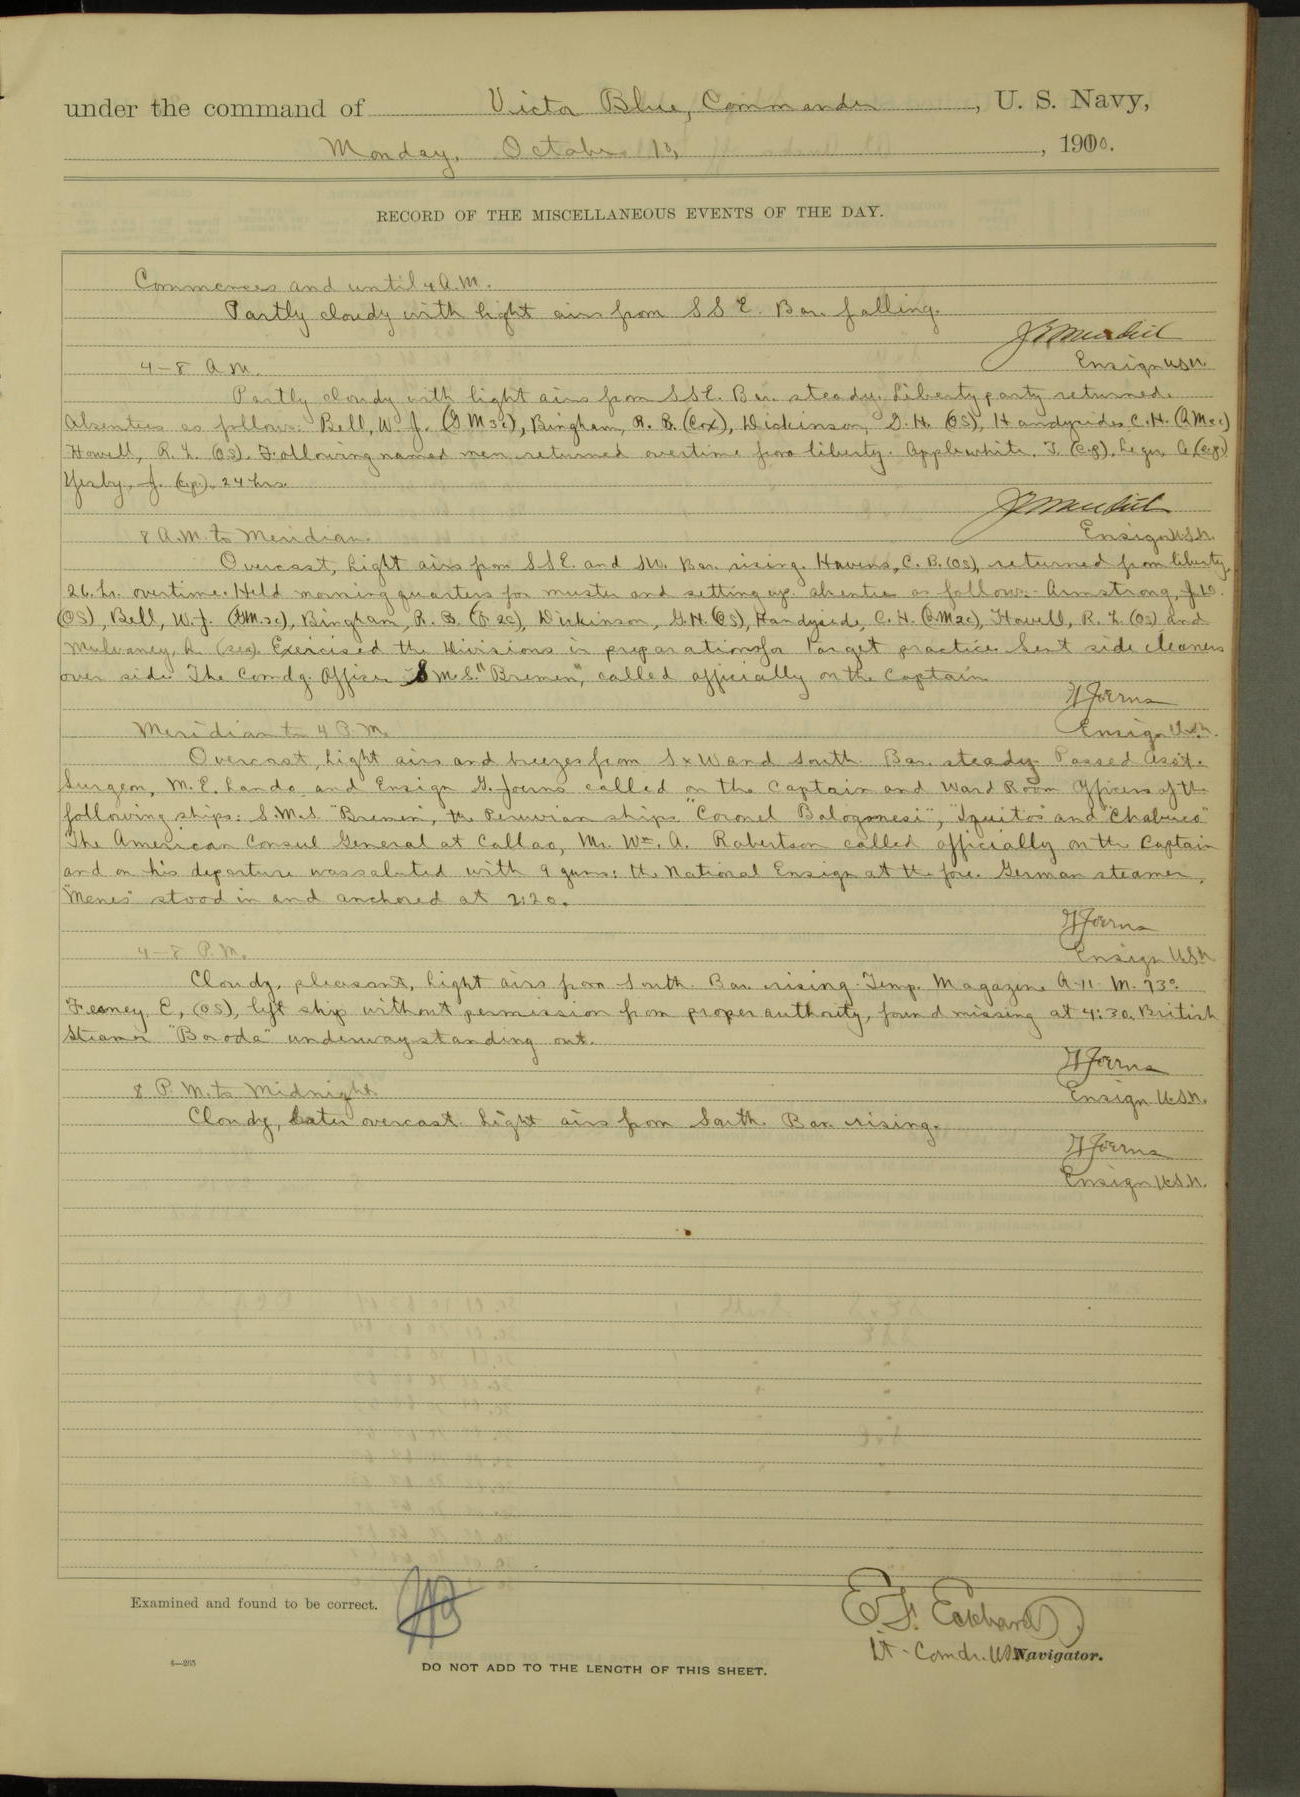 under the command of Victor Blue, Commander, U. S. Navy,
Monday, October 10, 1910.
RECORD OF THE MISCELLANEOUS EVENTS OF THE DAY.
Commences and until 4 A.M.
Partly cloudy with light airs from SSE. Bar. falling.
Ensign USN.
4-8 A.M.
Partly cloudy with light airs from SSE. Bar. steady. Liberty party returned.
Absentees as follows: Bell, W. J. (G.M.3c), Bingham, R. B. (Cox), Dickinson, G. H. (OS), Handyside C. H.
Howell, R. L. (OS). Following named men returned overtime from liberty. Applewhite, T. (C.P.), Leger, A. (C.P.)
Yerby, J. (C.P.), 24 hrs.
Ensign U.S.N.
8 A.M. to Meridian.
Overcast, light airs from SSE. and SW. Bar. rising. Havens, C. B. (OS), returned from liberty,
26 hr. overtime. Held morning quarters for muster and setting up. absentees as follows:- Armstrong,
(OS), Bell, W. J. (G.M.3c), Bingham, R. B., Dickinson, G. H. (OS), Handyside, C. H., Howell, R. L. (OS) and
Mulvaney, Exercised the Divisions in preparation for Target practice. Sent side cleaners
over side. The Comdg. Officer S.M.S. "Bremen", called officially on the Captain
G Joerns
Ensign U.S.N.
Meridian to 4 P.M.
Overcast, light airs and breezes from SxW and South. Bar. steady. Passed Ass't.
Surgeon, M. E. Lando and Ensign G. Joerns called on the Captain and Ward Room Officers of the
following ships: S.M.S. "Bremen", the Peruvian ships "Coronel Bologonesi", "Iquitos" and "Chabuco"
The American Consul General at Callao, Mr. Wm. A. Robertson called officially on the Captain
and on his departure was saluted with 9 guns: the National Ensign at the fore. German steamer,
"Menes" stood in and anchored at 2:20.
G Joerns
Ensign U.S.N.
4-8 P.M.
Cloudy, pleasant, light airs from South. Bar. rising. Temp. Magazine A-11-M. 93°
Feeney, E, (OS), left ship without permission from proper authority, found missing at 4:30. British
Steamer "Baroda" underway standing out.
G Joerns
Ensign U.S.N.
8 P.M. to Midnight.
Cloudy, later overcast. Light airs from South. Bar. rising.
G Joerns
Ensign U.S.N.
Examined and found to be correct.
E. F. Eckhardt
Lt-Comdr. U.S.N. Navigator.
DO NOT ADD TO THE LENGTH OF THIS SHEET.